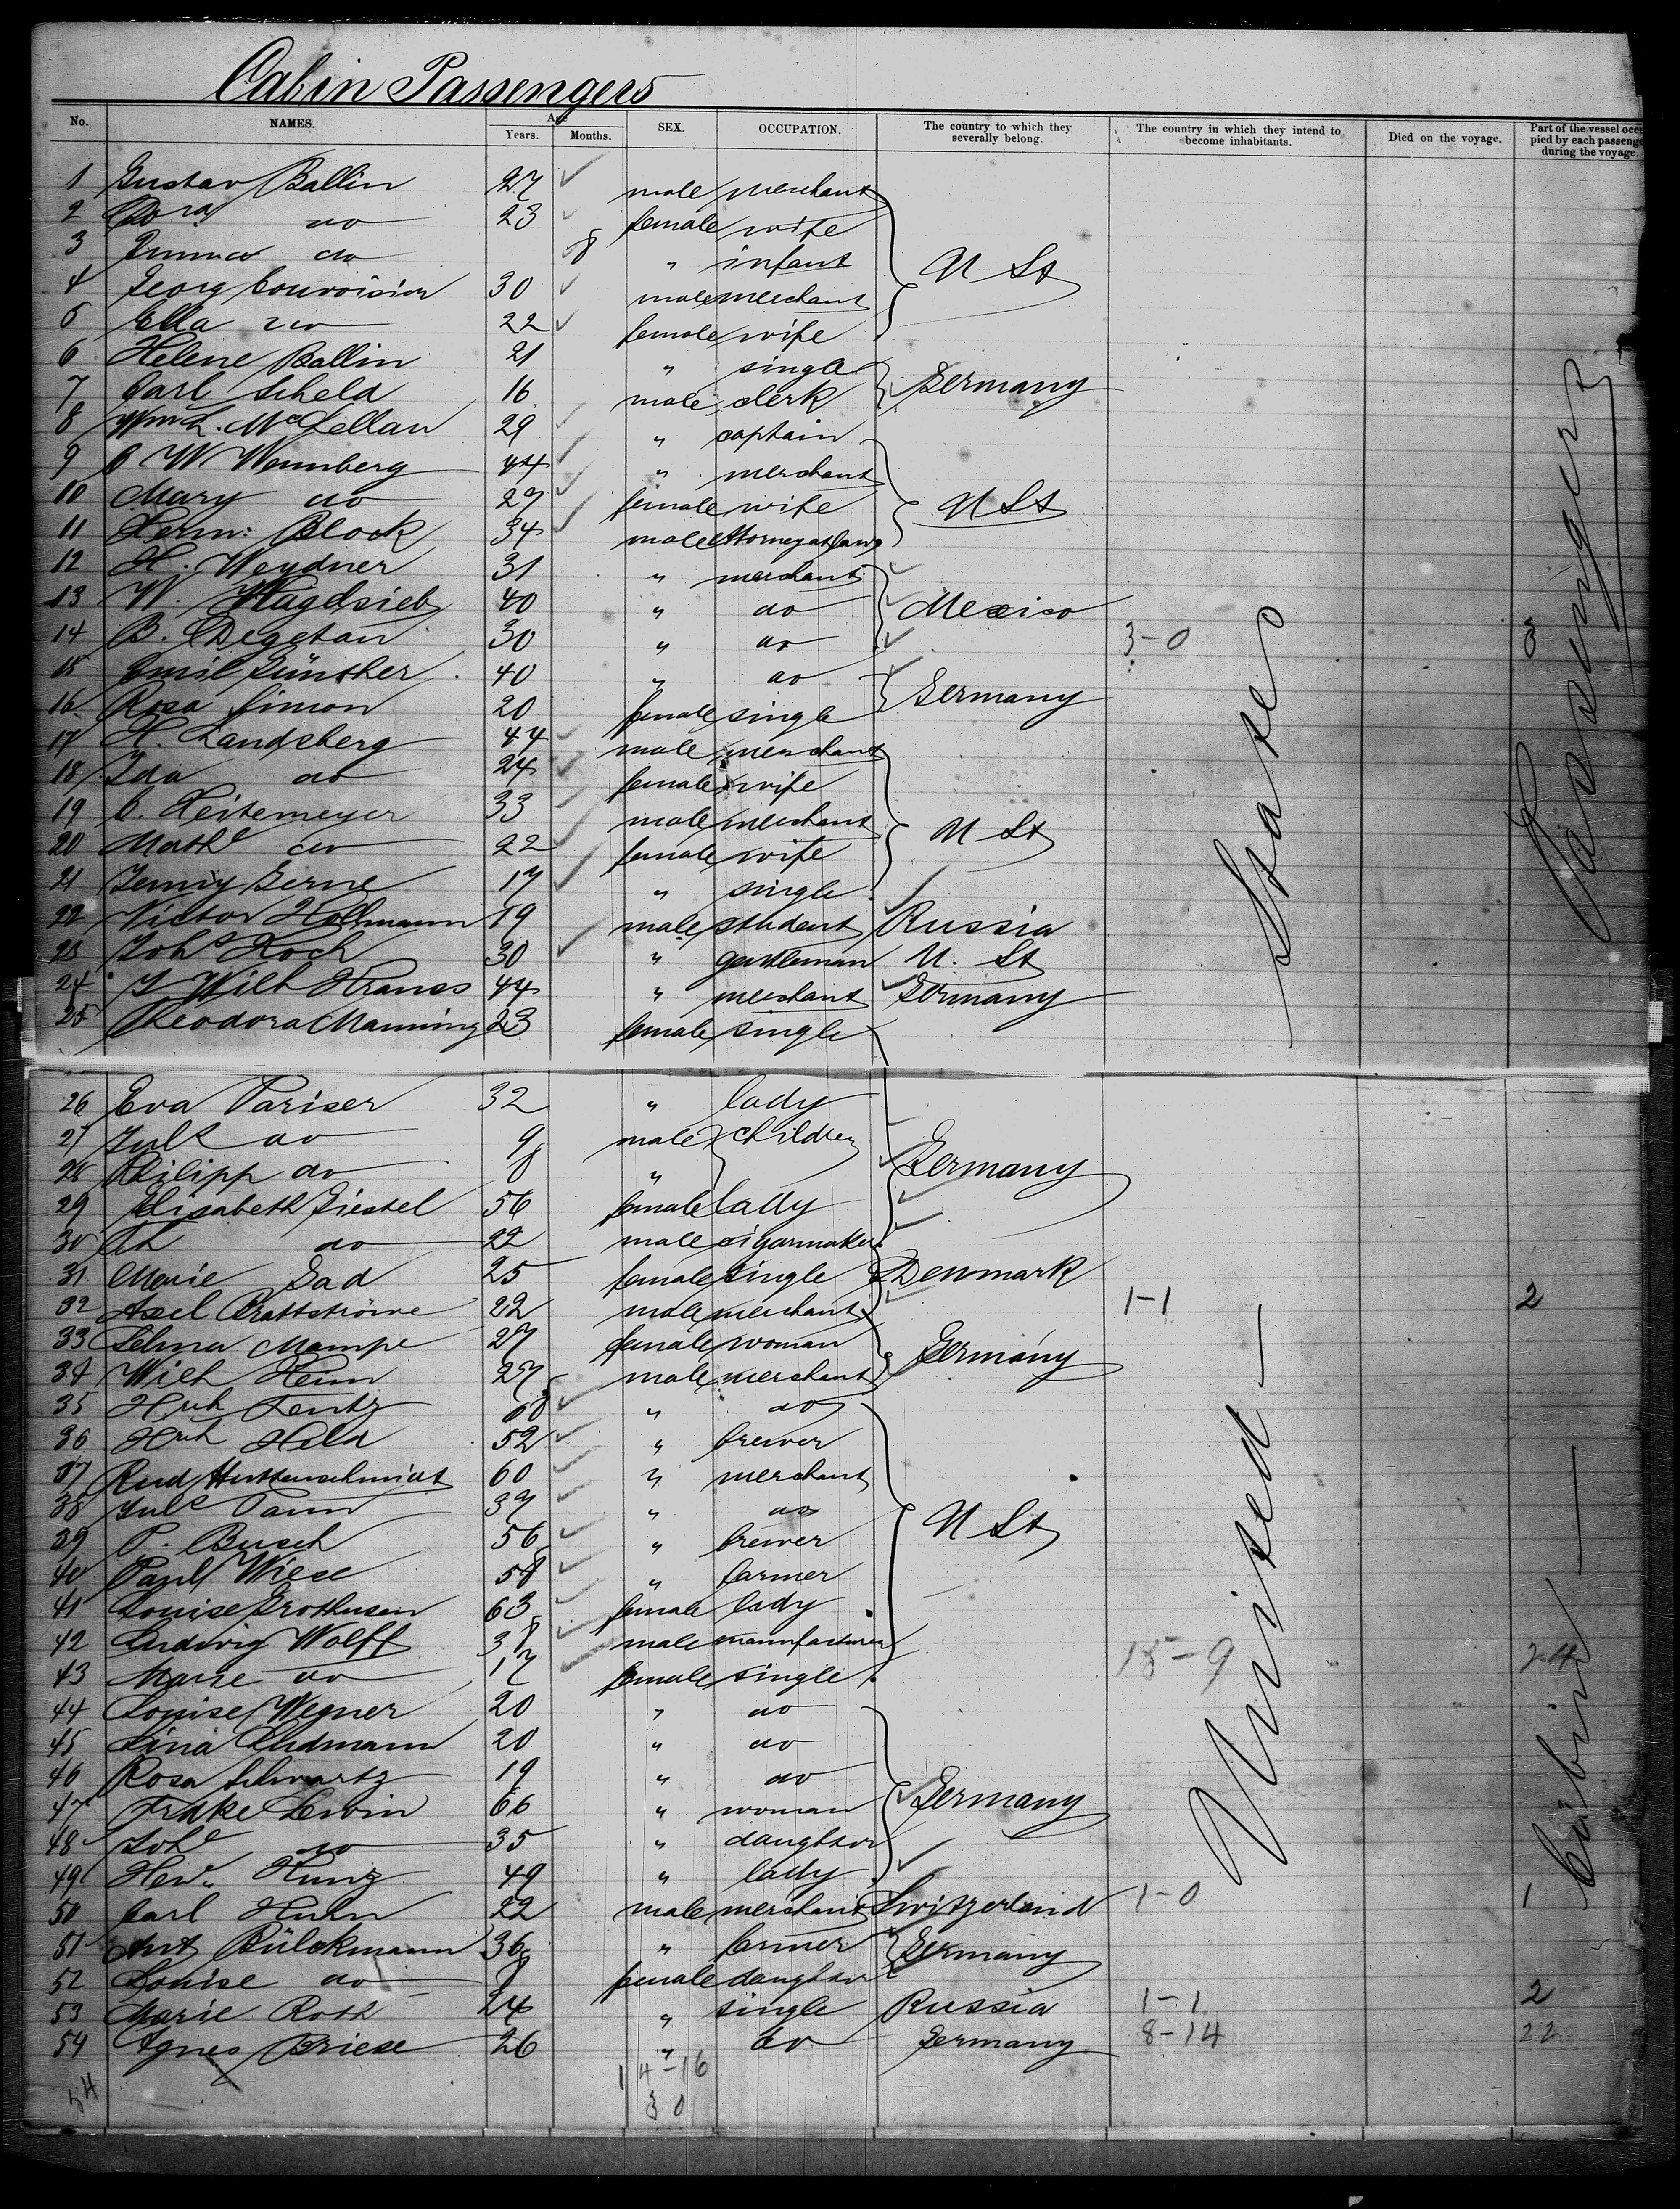 Cabin Passengers
No. NAMES. Age Years. Months. SEX. OCCUPATION. The country to which they severally belong. The country in which they intend to become inhabitants. Died on the voyage. Part of the vessel occupied by each passenger during the voyage.
1 Gustav Ballin 27 male merchant
2 Dora do 23 female wife
3 Emma do 8 " infant U St
4 Georg Courvoisier 30 male merchant
5 Ella do 22 female wife
6 Helene Ballin 21 " single
7 Carl Scheld 16 male clerk Germany
8 Wm L. McLellan 29 " captain
9 C W Wennberg 44 " merchant
10 Mary do 27 female wife U St
11 Herm: Block 34 male Attorney at law
12 H. Weydner 31 " merchant
13 W. Hagdsieb 40 " do Mexico
14 B. Degetau 30 " do 3-0 3
15 Emil Günther 40 " do
16 Rosa Simon 20 female single Germany
17 H. Landsberg 44 male merchant
18 Ida do 24 female wife
19 C. Heitemeyer 33 male merchant
20 Mathe do 22 female wife U St
21 Jenny Gerne 17 " single
22 Victor Hollmann 19 male student Russia
23 Johs Koch 30 " gentleman U. St
24 J Wilh Krauss 44 " merchant Germany
25 Theodora Manning 23 female single
26 Eva Pariser 32 " lady
27 Juls do 9 male children
28 Philipp do 8 " Germany
29 Elisabeth Giestel 56 female lady
30 Ch do 22 male cigarmaker
31 Marie Gad 25 female single Denmark
32 Axel Brattströme 22 male merchant 1-1 2
33 Selma Mampe 27 female woman
34 Wilh Heim 27 male merchant Germany
35 Hrch Lentz 68 " do
36 Hrch Held 52 " brewer
37 Rud Huttenschmidt 60 " merchant
38 Juls Pann 37 " do
39 P. Busch 56 " brewer U St
40 Paul Wiese 58 " farmer
41 Louise Grothusen 63 female lady
42 Ludwig Wolff 38 male manufacturer
43 Marie do 17 female single 15-9 24
44 Louise Wegner 20 " do
45 Lina Ehdmann 20 " do
46 Rosa Schwartz 19 " do
47 Frake Lewin 66 " woman Germany
48 Johe do 35 " daughter
49 Hedw. Kunz 49 " lady
50 Carl Huhn 22 male merchant Switzerland 1-0 1
51 Ant Bülckmann 36 " farmer Germany
52 Louise do 8 female daughter
53 Marie Roth 24 " single Russia 1-1 2
54 Agnes Briese 26 " do Germany 8-14 22
54
14-16
30
United States
Cabin Passenger